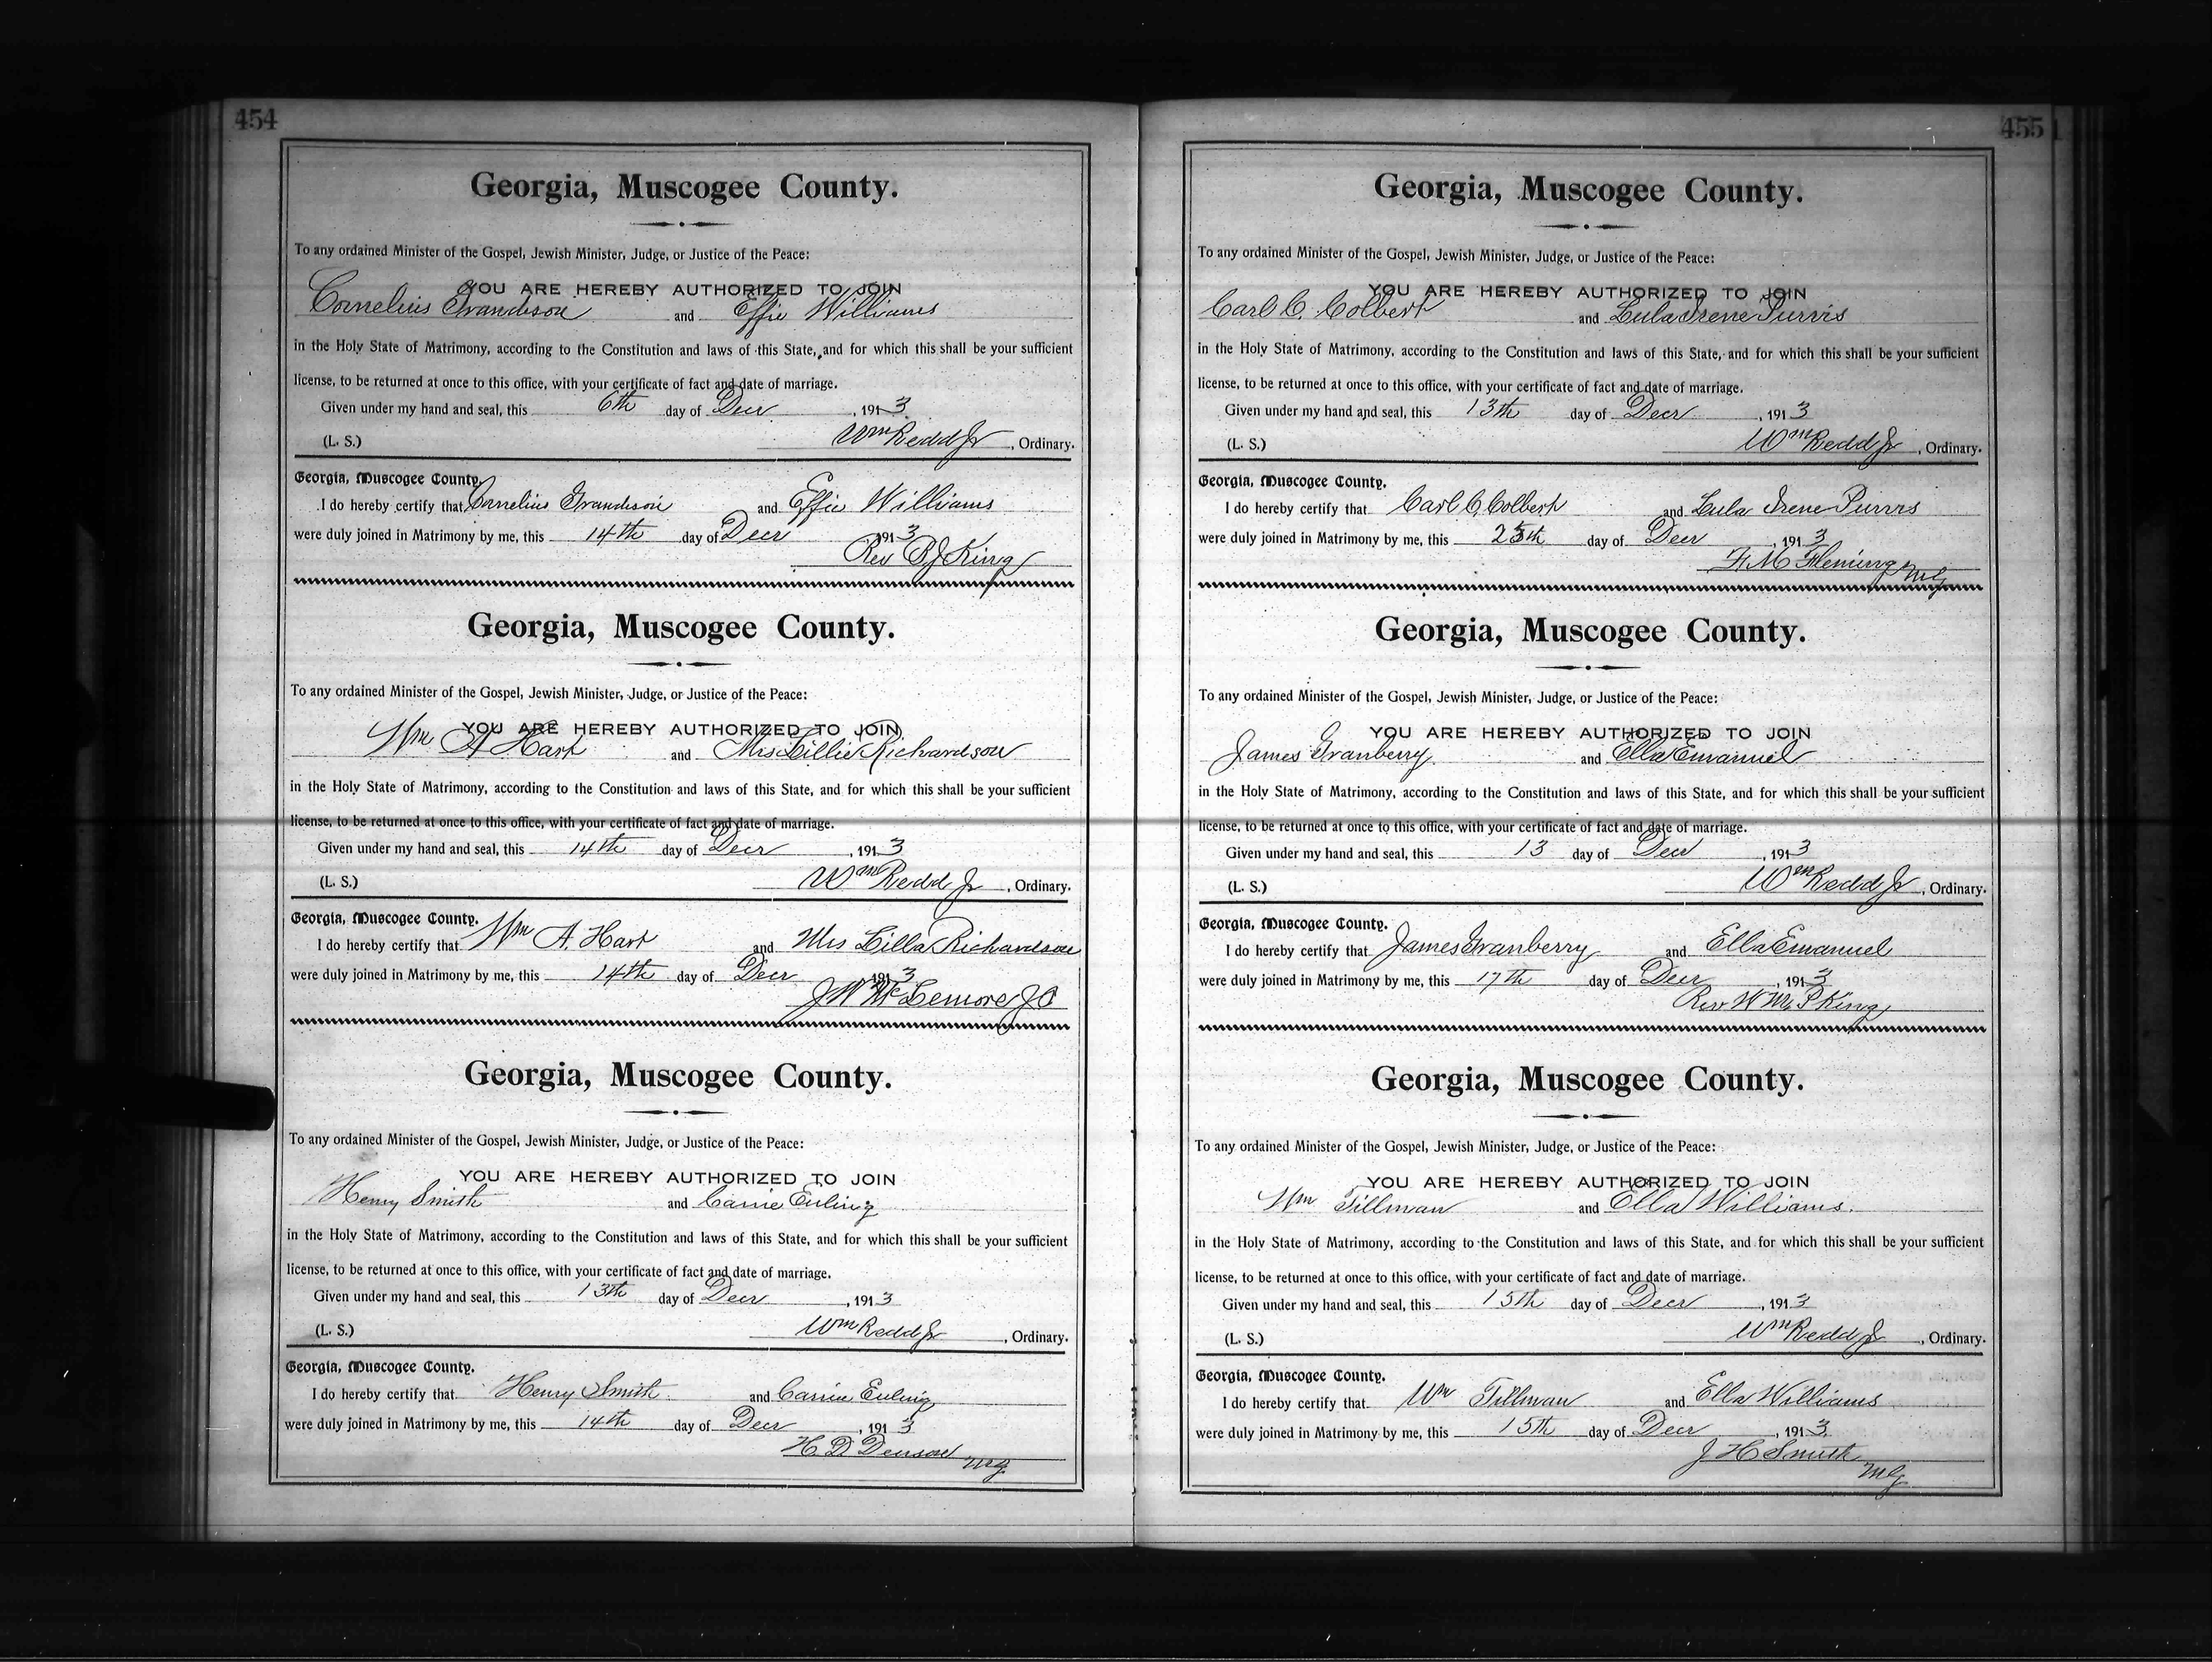 454
Georgia, Muscogee County.
To any ordained Minister of the Gospel, Jewish Minister, Judge, or Justice of the Peace:
YOU ARE HEREBY AUTHORIZED TO JOIN
Cornelius Grandison and Effie Williams
in the Holy State of Matrimony, according to the Constitution and laws of this State, and for which this shall be your sufficient
license, to be returned at once to this office, with your certificate of fact and date of marriage.
Given under my hand and seal, this 6th day of Decr, 1913
(L. S.) Wm Redd Jr, Ordinary.
Georgia, Muscogee County.
I do hereby certify that Cornelius Grandison and Effie Williams
were duly joined in Matrimony by me, this 14th day of Decr 1913
Rev B J King
Georgia, Muscogee County.
To any ordained Minister of the Gospel, Jewish Minister, Judge, or Justice of the Peace:
YOU ARE HEREBY AUTHORIZED TO JOIN
Wm A Hart and Mrs Lillie Richardson
in the Holy State of Matrimony, according to the Constitution and laws of this State, and for which this shall be your sufficient
license, to be returned at once to this office, with your certificate of fact and date of marriage.
Given under my hand and seal, this 14th day of Decr, 1913
(L. S.) Wm Redd Jr, Ordinary.
Georgia, Muscogee County.
I do hereby certify that Wm A. Hart and Mrs Lilla Richardson
were duly joined in Matrimony by me, this 14th day of Decr 1913
J W McLemore J P
Georgia, Muscogee County.
To any ordained Minister of the Gospel, Jewish Minister, Judge, or Justice of the Peace:
YOU ARE HEREBY AUTHORIZED TO JOIN
Henry Smith and Carrie Euling
in the Holy State of Matrimony, according to the Constitution and laws of this State, and for which this shall be your sufficient
license, to be returned at once to this office, with your certificate of fact and date of marriage.
Given under my hand and seal, this 13th day of Decr, 1913
(L. S.) Wm Redd Jr, Ordinary.
Georgia, Muscogee County.
I do hereby certify that Henry Smith and Carrie Euling
were duly joined in Matrimony by me, this 14th day of Decr, 1913
H. D Denson MG
455
Georgia, Muscogee County.
To any ordained Minister of the Gospel, Jewish Minister, Judge, or Justice of the Peace:
YOU ARE HEREBY AUTHORIZED TO JOIN
Carl C. Colbert and Lula Irene Purvis
in the Holy State of Matrimony, according to the Constitution and laws of this State, and for which this shall be your sufficient
license, to be returned at once to this office, with your certificate of fact and date of marriage.
Given under my hand and seal, this 13th day of Decr, 1913
(L. S.) Wm Redd Jr, Ordinary.
Georgia, Muscogee County.
I do hereby certify that Carl C. Colbert and Lula Irene Purvis
were duly joined in Matrimony by me, this 25th day of Decr, 1913
F. M Fleming MG
Georgia, Muscogee County.
To any ordained Minister of the Gospel, Jewish Minister, Judge, or Justice of the Peace:
YOU ARE HEREBY AUTHORIZED TO JOIN
James Granberry and Ella Emanuel
in the Holy State of Matrimony, according to the Constitution and laws of this State, and for which this shall be your sufficient
license, to be returned at once to this office, with your certificate of fact and date of marriage.
Given under my hand and seal, this 13 day of Decr, 1913
(L. S.) Wm Redd Jr, Ordinary.
Georgia, Muscogee County.
I do hereby certify that James Granberry and Ella Emanuel
were duly joined in Matrimony by me, this 17th day of Decr, 1913
Rev W M. P King
Georgia, Muscogee County.
To any ordained Minister of the Gospel, Jewish Minister, Judge, or Justice of the Peace:
YOU ARE HEREBY AUTHORIZED TO JOIN
Wm Tillman and Ella Williams.
in the Holy State of Matrimony, according to the Constitution and laws of this State, and for which this shall be your sufficient
license, to be returned at once to this office, with your certificate of fact and date of marriage.
Given under my hand and seal, this 15th day of Decr, 1913
(L. S.) Wm Redd Jr, Ordinary.
Georgia, Muscogee County.
I do hereby certify that Wm Tillman and Ella Williams
were duly joined in Matrimony by me, this 15th day of Decr, 1913
J H Smith MG